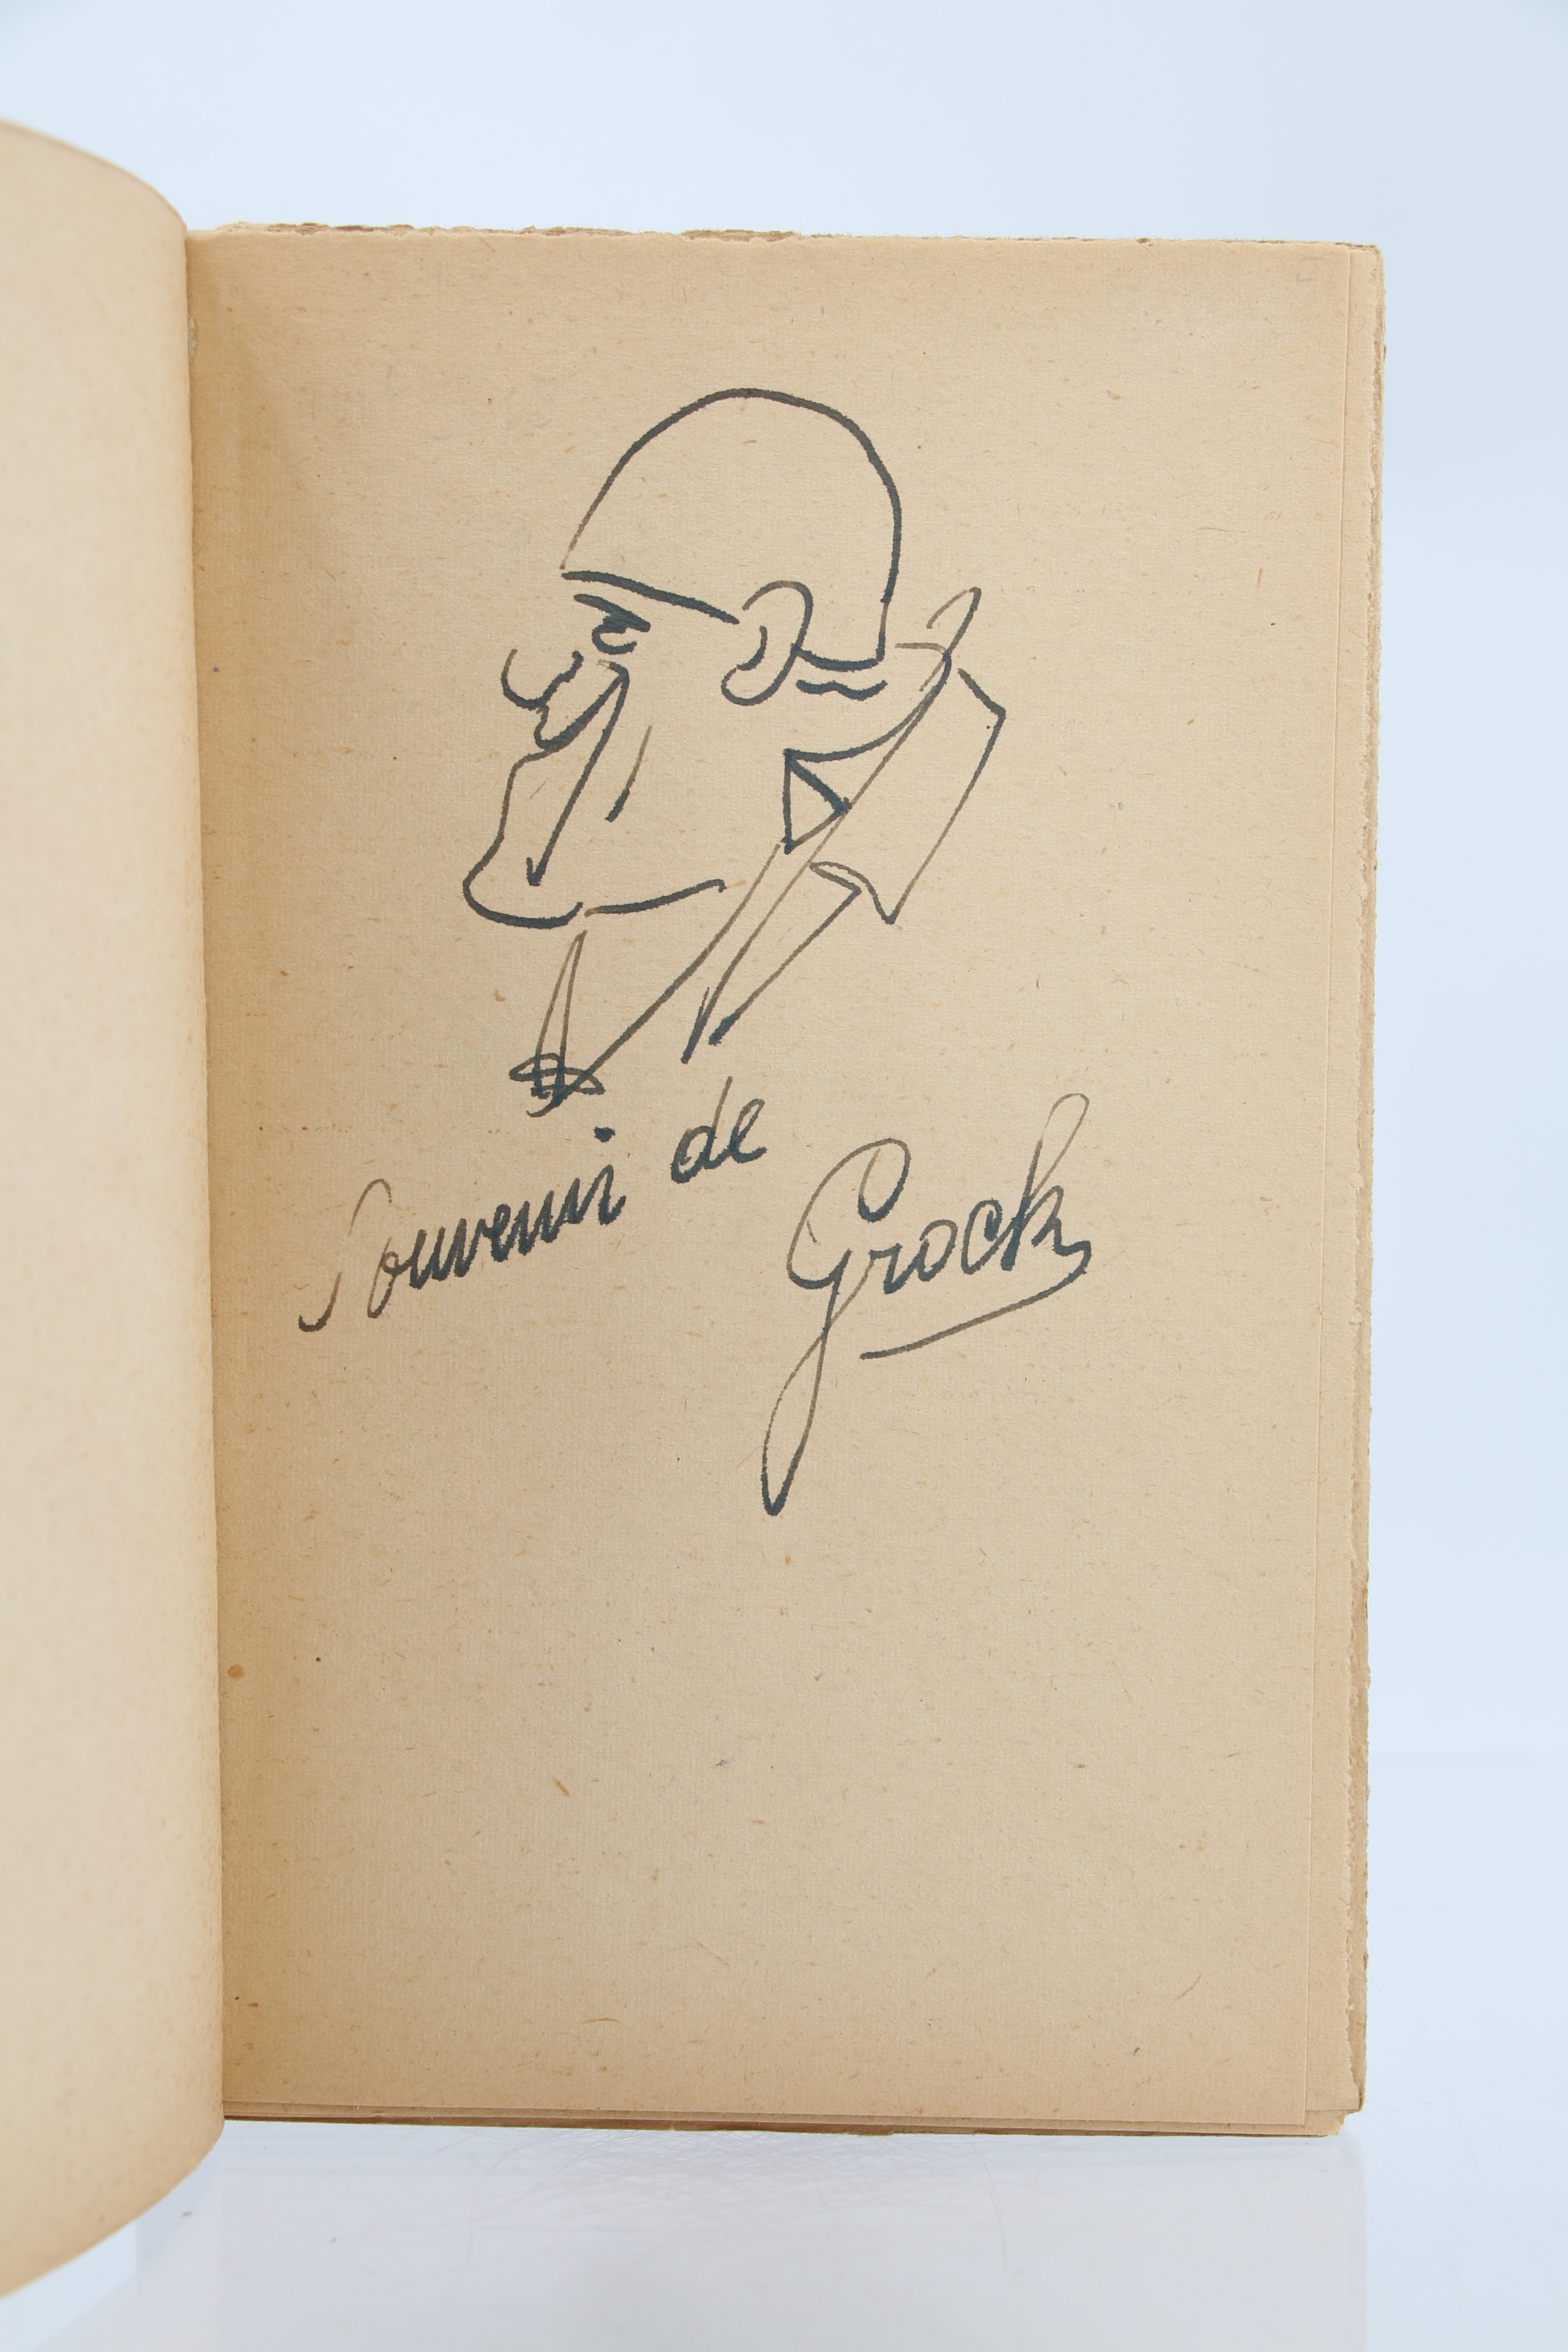 Souvenir de
Grock